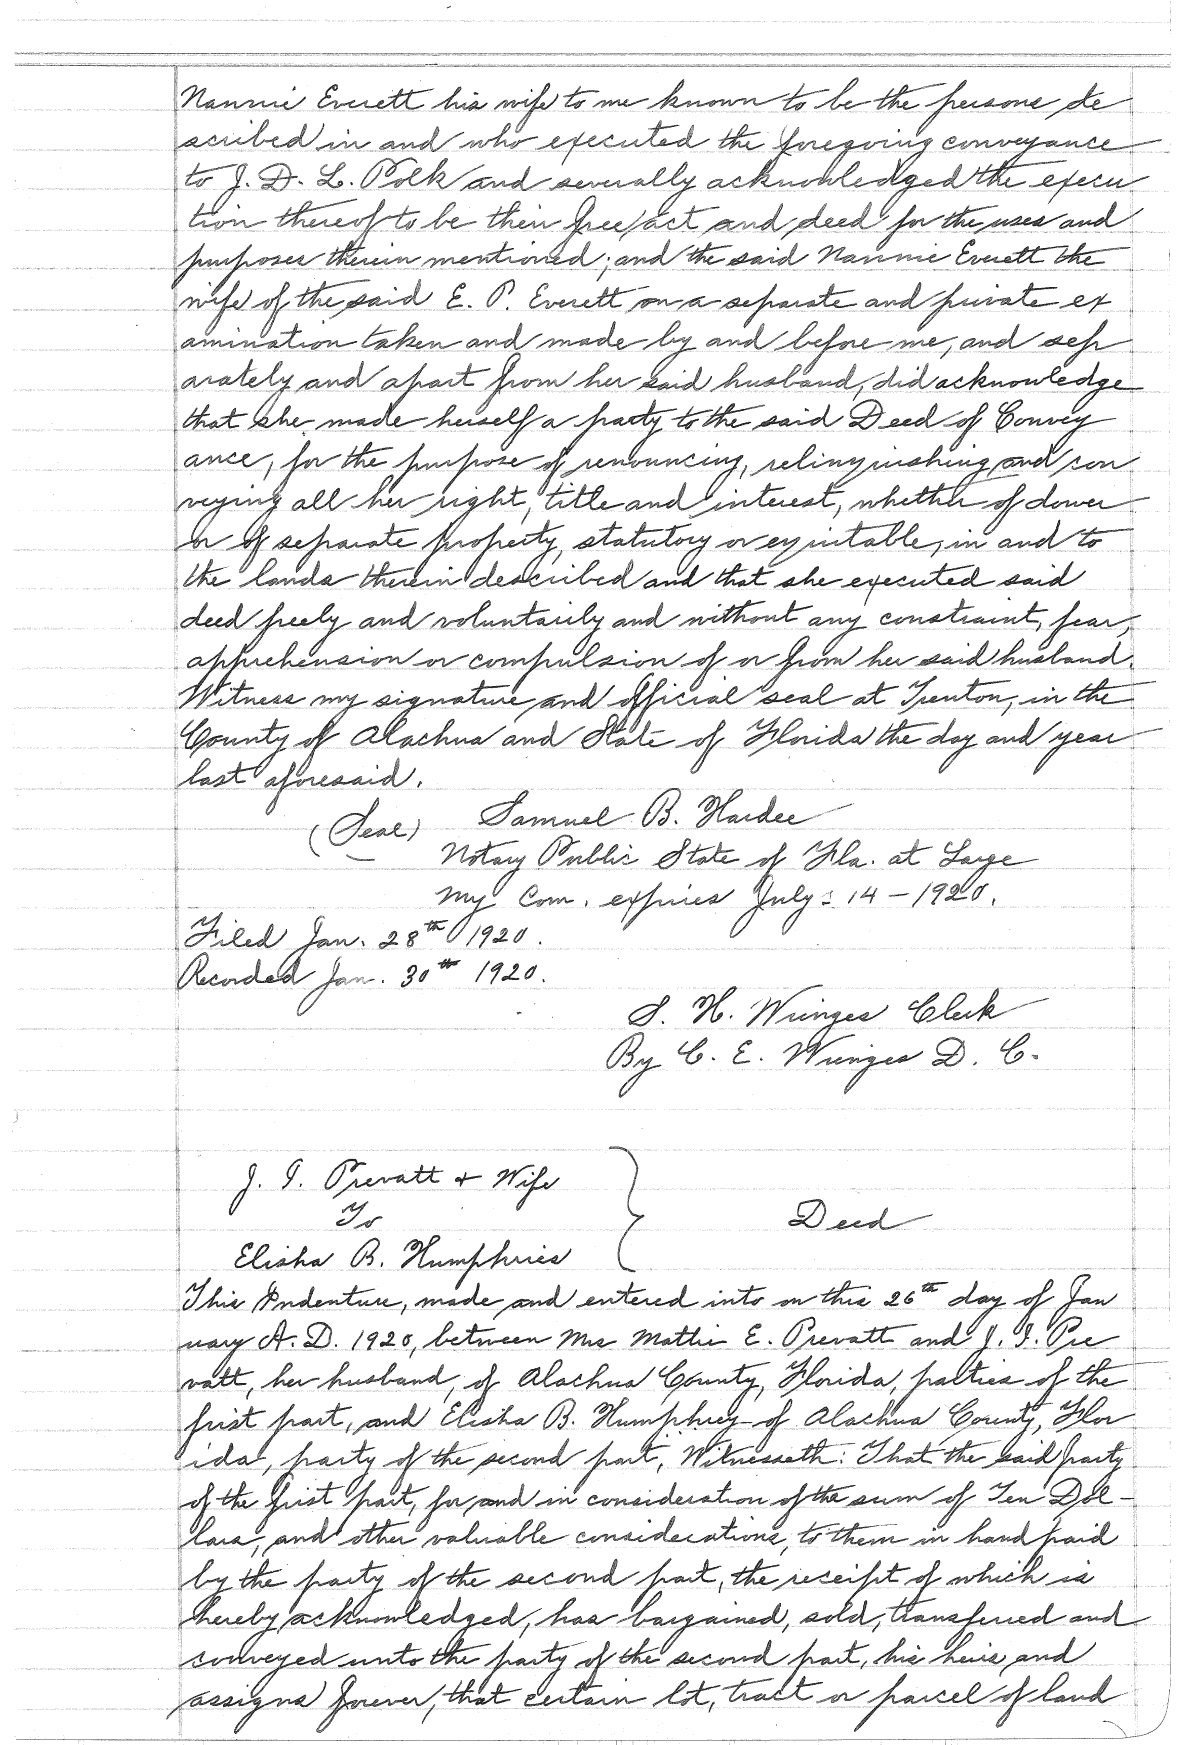 Nannie Everett his wife to me known to be the persons de
scribed in and who executed the foregoing conveyance
to J. D. L. Polk and severally acknowledged the execu
tion thereof to be their free act and deed for the uses and
purposes therein mentioned; and the said Nannie Everett the
wife of the said E. P. Everett on a separate and private ex
amination taken and made by and before me, and sep
arately and apart from her said husband, did acknowledge
that she made herself a party to the said Deed of Convey
ance, for the purpose of renouncing, relinquishing and con
veying all her right, title and interest, whether of dower
or of separate property, statutory or equitable, in and to
the lands therein described and that she executed said
deed freely and voluntarily and without any constraint, fear,
apprehension or compulsion of or from her said husband.
Witness my signature and official seal at Trenton, in the
County of Alachua and State of Florida the day and year
last aforesaid.
(Seal) Samuel B. Hardee
Notary Public State of Fla. at Large
My Com. expires July 14 - 1920.
Filed Jan. 28th 1920.
Recorded Jan. 30th 1920.
S. H. Wienges Clerk
By C. E. Wienges D. C.
J. I. Prevatt & Wife
To
Deed
Elisha B. Humphries
This Indenture, made and entered into on this 26th day of Jan
uary A. D. 1920, between Mrs Mattie E. Prevatt and J. I. Pre
vatt, her husband, of Alachua County, Florida, parties of the
first part, and Elisha B. Humphrey of Alachua County, Flor
ida, party of the second part, Witnesseth: That the said party
of the first part, for and in consideration of the sum of Ten Dol-
lars, and other valuable considerations, to them in hand paid
by the party of the second part, the receipt of which is
hereby acknowledged, has bargained, sold, transferred and
conveyed unto the party of the second part, his heirs and
assigns forever, that certain lot, tract or parcel of land